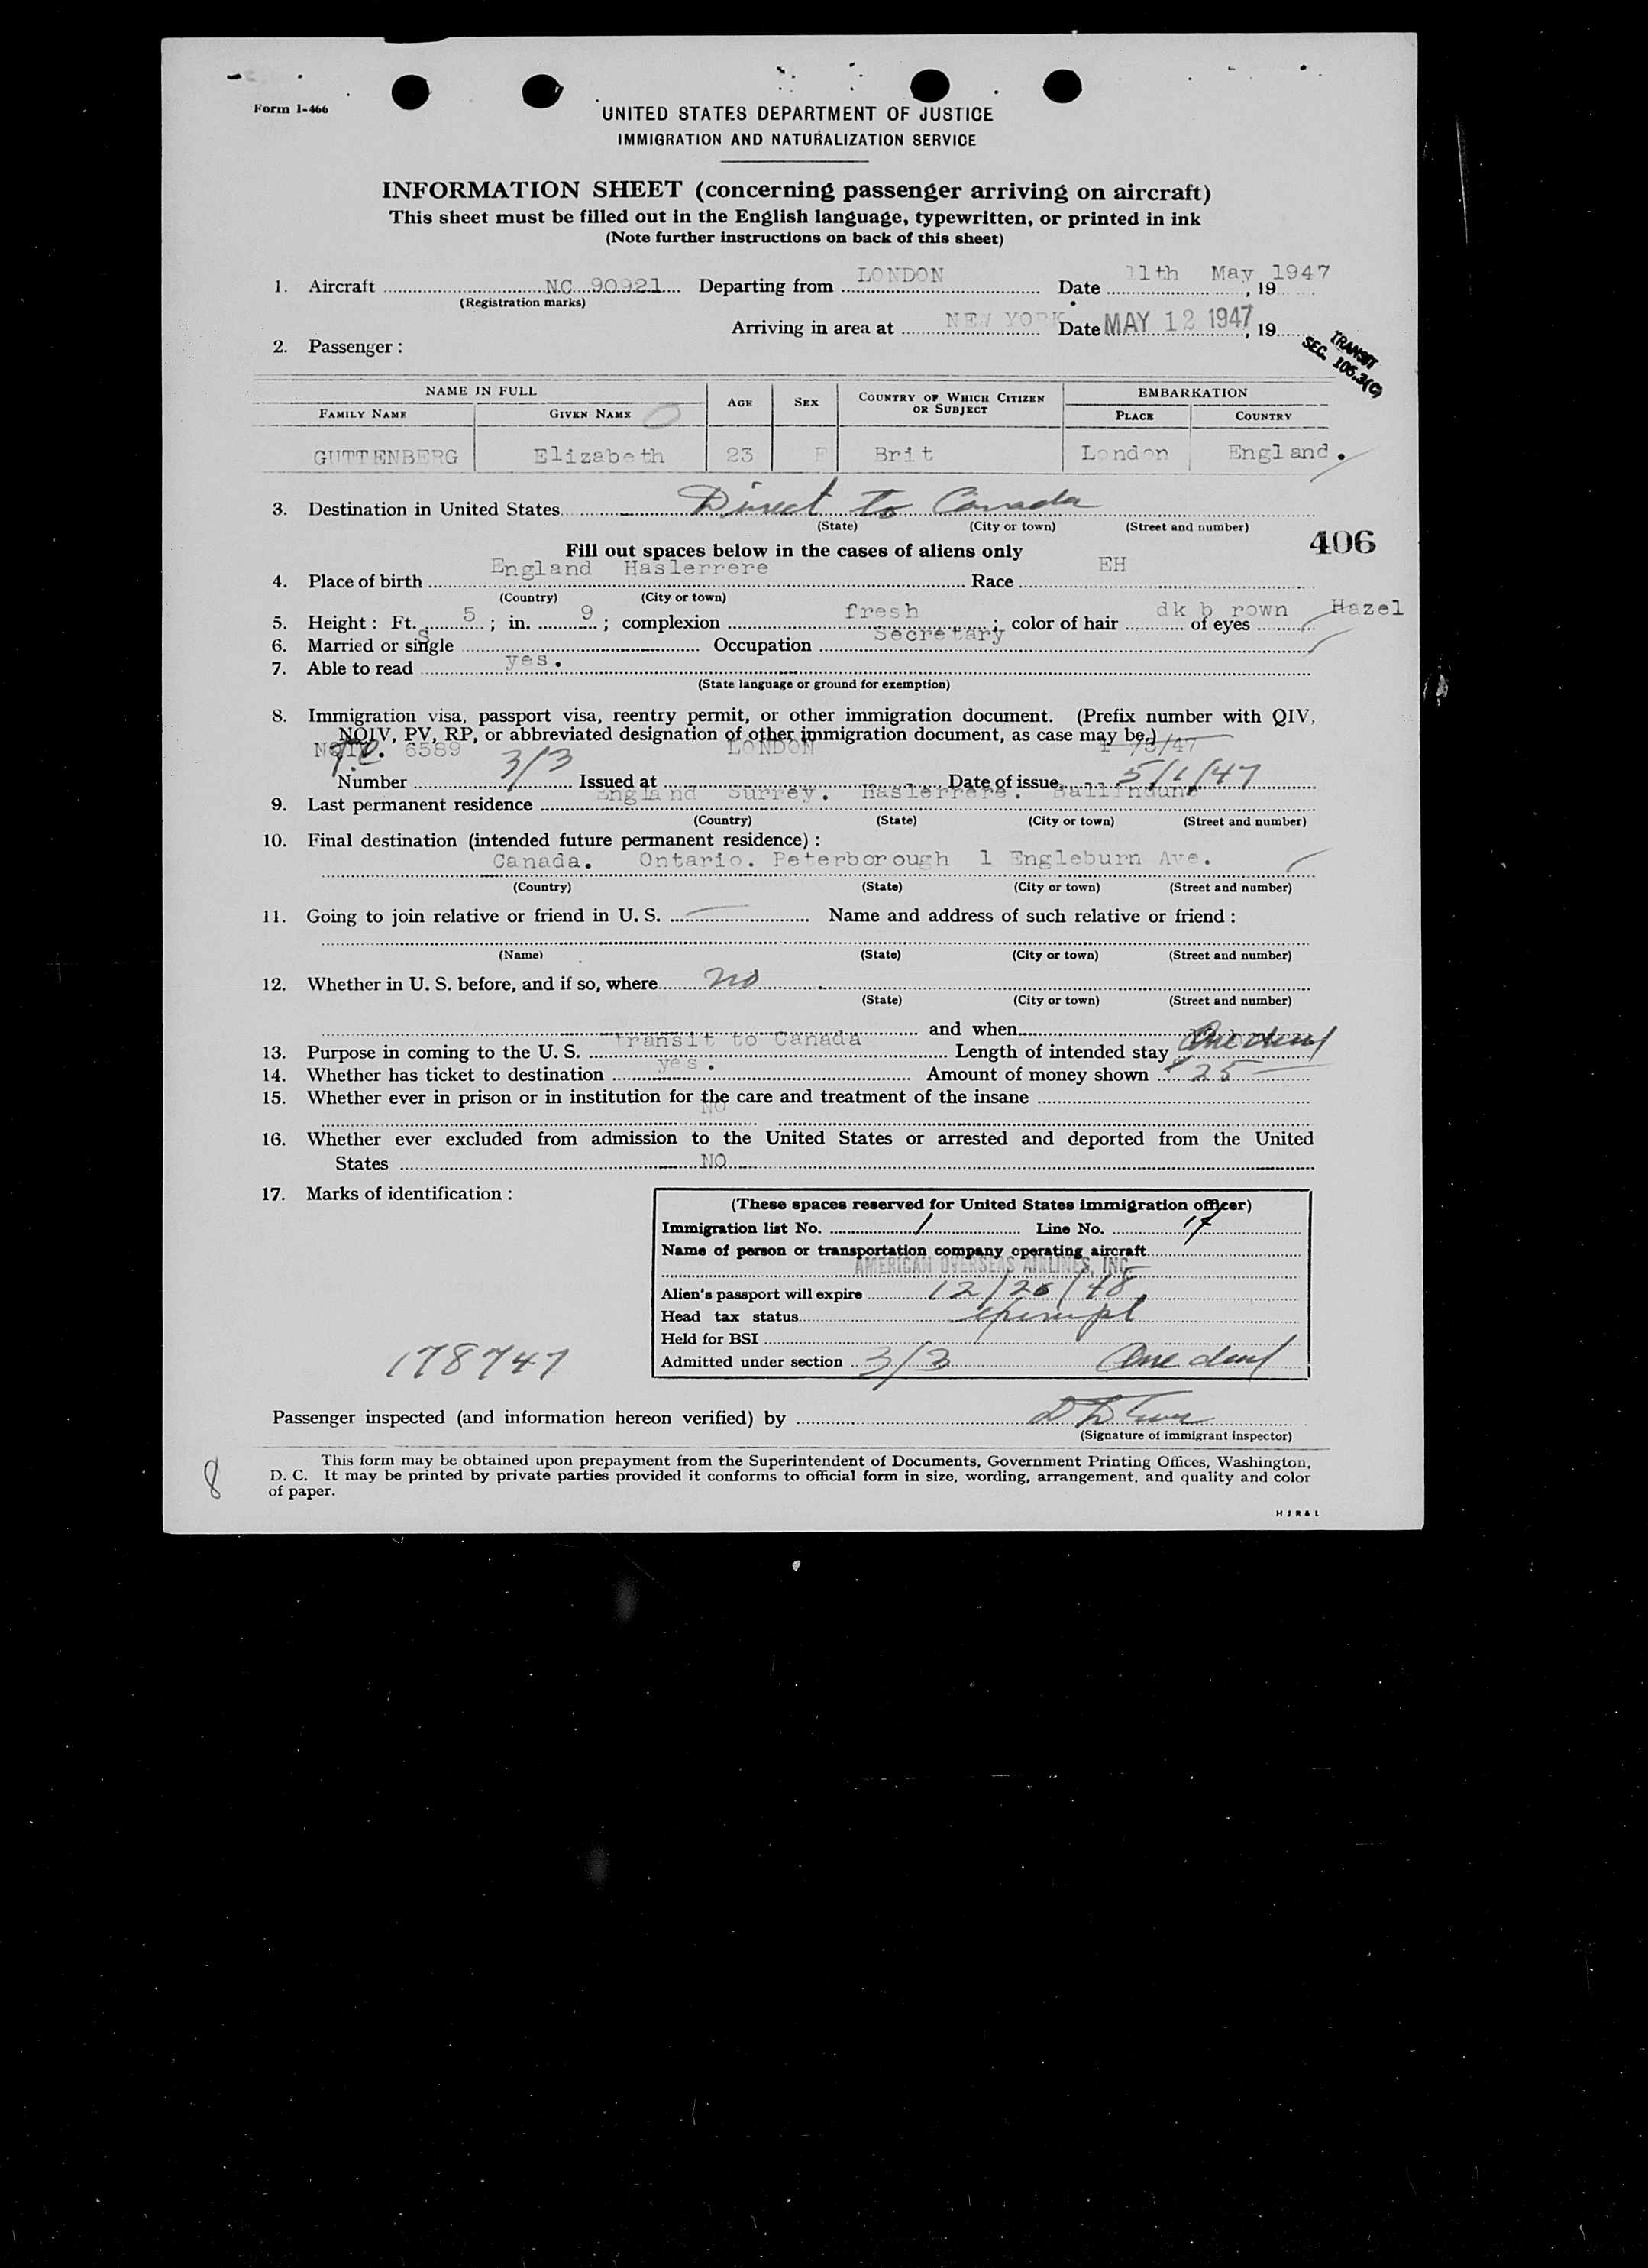 Form I-466
UNITED STATES DEPARTMENT OF JUSTICE
IMMIGRATION AND NATURALIZATION SERVICE
INFORMATION SHEET (concerning passenger arriving on aircraft)
This sheet must be filled out in the English language, typewritten, or printed in ink
(Note further instructions on back of this sheet)
1. Aircraft NC 90921 Departing from LONDON Date 11th May 1947, 19
(Registration marks)
Arriving in area at NEW YORK Date MAY 12 1947, 19
TRANSIT
SEC. 105.3(C)
2. Passenger:
NAME IN FULL AGE SEX COUNTRY OF WHICH CITIZEN OR SUBJECT EMBARKATION
FAMILY NAME GIVEN NAME PLACE COUNTRY
GUTTENBERG Elizabeth 23 F Brit London England.
3. Destination in United States Direct to Canada
(State) (City or town) (Street and number)
406
Fill out spaces below in the cases of aliens only
4. Place of birth England Haslerrere Race EH
(Country) (City or town)
5. Height: Ft. 5; in. 9; complexion fresh; color of hair dk b rown of eyes Hazel
6. Married or single S Occupation Secretary
7. Able to read yes.
(State language or ground for exemption)
8. Immigration visa, passport visa, reentry permit, or other immigration document. (Prefix number with QIV,
NQIV, PV, RP, or abbreviated designation of other immigration document, as case may be.)
6589 LONDON
Number 3/3 Issued at Date of issue 5/1/47
9. Last permanent residence England Surrey. Haslerrere.
(Country) (State) (City or town) (Street and number)
10. Final destination (intended future permanent residence):
Canada. Ontario. Peterborough 1 Engleburn Ave.
(Country) (State) (City or town) (Street and number)
11. Going to join relative or friend in U. S. Name and address of such relative or friend:
(Name) (State) (City or town) (Street and number)
12. Whether in U. S. before, and if so, where no
(State) (City or town) (Street and number)
and when
13. Purpose in coming to the U. S. transit to Canada Length of intended stay One day
14. Whether has ticket to destination yes. Amount of money shown $25
15. Whether ever in prison or in institution for the care and treatment of the insane
NO
16. Whether ever excluded from admission to the United States or arrested and deported from the United
States NO
17. Marks of identification:
(These spaces reserved for United States immigration officer)
Immigration list No. 1 Line No. 17
Name of person or transportation company operating aircraft
AMERICAN OVERSEAS AIRLINES, INC.
Alien's passport will expire 12/20/48
Head tax status exempt
Held for BSI
Admitted under section 3/3 One day
178747
Passenger inspected (and information hereon verified) by
(Signature of immigrant inspector)
This form may be obtained upon prepayment from the Superintendent of Documents, Government Printing Offices, Washington,
D. C. It may be printed by private parties provided it conforms to official form in size, wording, arrangement, and quality and color
of paper.
8
H J R & L